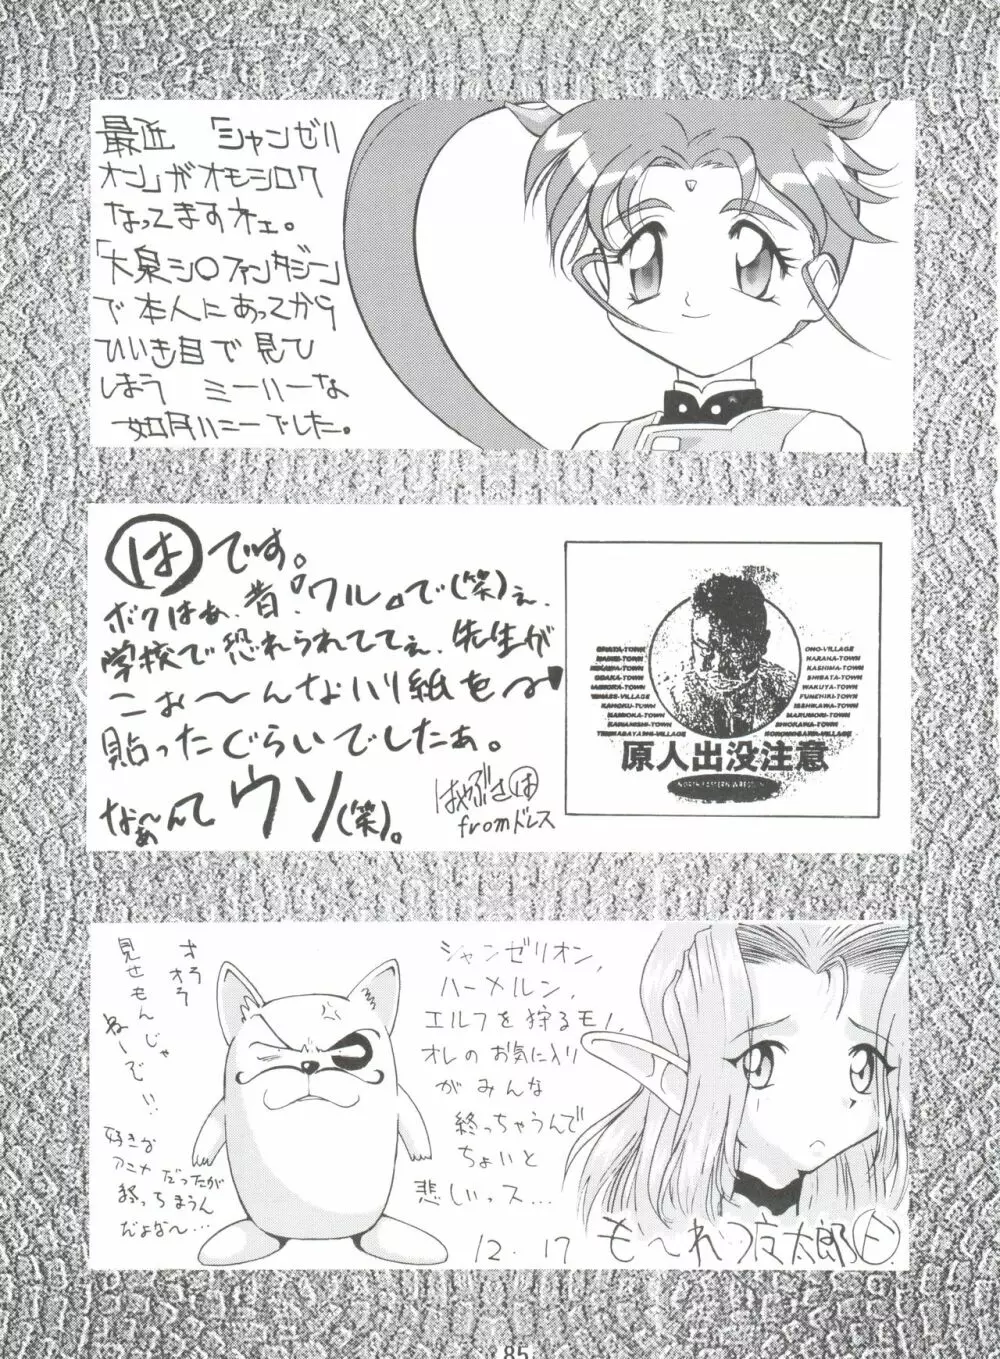 最近 「シャンゼリ
オン」がオモシロク
なってますネェ。
「大泉シ○ファンタジー」
で本人にあってから
ひいき目で見ひ
しまう ミーハーな
如月ハニーでした。
はです。
ボクはぁ、昔『ワル』で(笑)ぇ、
学校で恐れられててぇ、先生が
こぉ〜んなハリ紙を
貼ったぐらいでしたぁ。
なぁ〜んて ウソ(笑)。
はやぶさは
fromドレス
ONO-VILLAGE
NARAHA-TOWN
KASHIMA-TOWN
SHIBATA-TOWN
WAKUYA-TOWN
FUNEHIKI-TOWN
ISSHIKAWA-TOWN
MARUMORI-TOWN
SHIOKAWA-TOWN
原人出没注意
オラオラ
見せもんじゃ
ねーでい!!
好きな
アニメだったが
終っちまうん
だよな〜…
シャンゼリオン,
ハーメルン,
エルフを狩るモノ,
オレのお気に入り
がみんな
終っちゃうんで
ちょいと
悲しいっス…
12.17
も〜れつ夜太郎
85